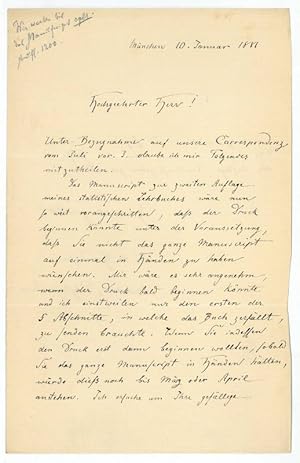 München 10. Januar 1881
Hochgeehrter Herr!
Unter Bezugnahme auf unsere Correspondenz
vom Juli vor. J. erlaube ich mir Folgendes
mitzutheilen.
Das Manuscript zur zweiten Auflage
meines italienischen Lehrbuches wäre nun
so weit vorangeschritten, daß der Druck
beginnen könnte unter der Voraussetzung,
daß Sie nicht das ganze Manuscript
auf einmal in Händen zu haben
wünschen. Mir wäre es sehr angenehm,
wenn der Druck bald beginnen könnte
und ich einstweilen nur den ersten der
5 Abschnitte, in welche das Buch zerfällt,
zu senden brauchte. Wenn Sie indessen
den Druck erst dann beginnen wollten, sobald
Sie das ganze Manuscript in Händen hätten,
würde dieß noch bis März oder April
anstehen. Ich ersuche um Ihre gefällige